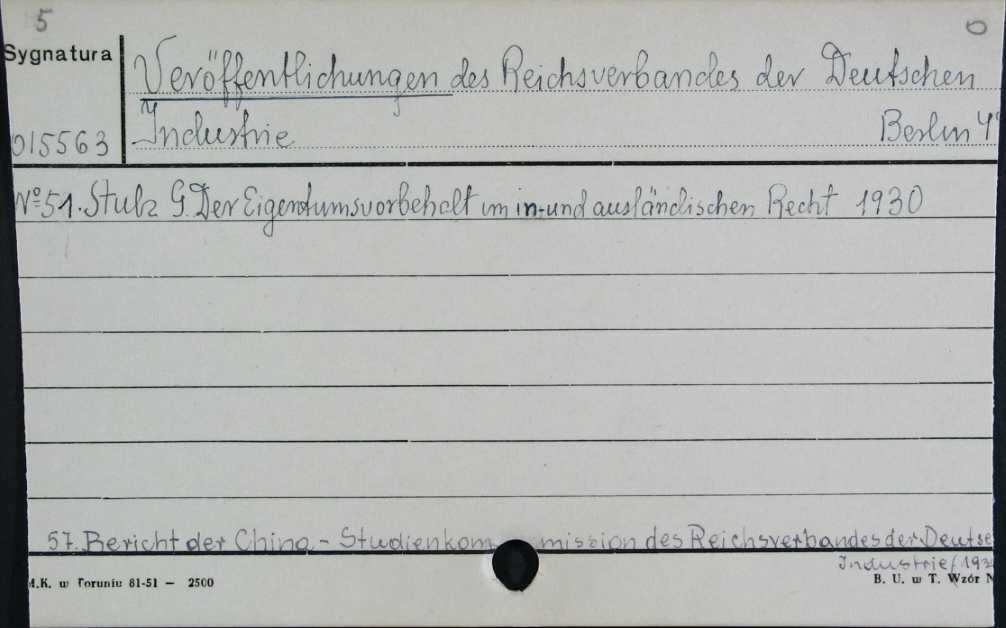 5
Sygnatura
Veröffentlichungen des Reichsverbandes der Deutschen
015563
Industrie Berlin 4°
Nº 51. Stulz G. Der Eigentumsvorbehalt im in-und ausländischen Recht 1930
57. Bericht der China-Studienkommission des Reichsverbandes der Deutsc
Industrie
M.K. w Toruniu 81-51 — 2500
B. U. w T. Wzór N